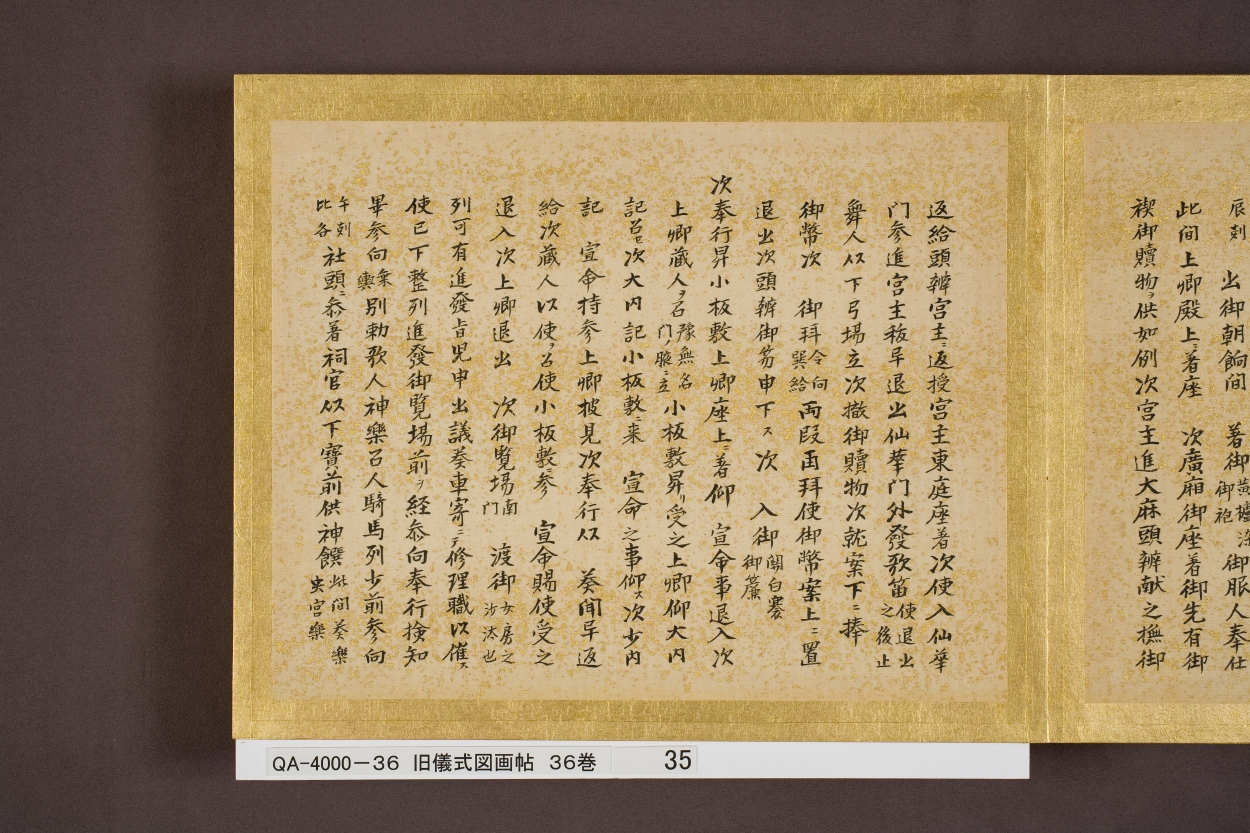 辰刻 出御朝餉間 著御 黄櫨染御袍 御服人奉仕
此间上卿殿上ニ著座 次廣廂御座着御先有御
禊御贖物ヲ供如例次宮主進大麻頭辨献之撫御
返給頭辨宮主ニ返授宮主東庭座著次使入仙華
门参進宮主秡早退出仙華门外發歌笛 使退出之後止
舞人以下弓場立次撤御贖物次就案下ニ捧
御幣次 御拜 両段再拜使御幣案上ニ置
退出次頭辨御笏申下ス次 入御 関白褰御簾
次奉行昇小板敷上卿座上ニ著仰 宣命事退入次
上卿蔵人ヲ召 小板敷昇リ受之上卿仰大内
記召セ次大内記小板敷ニ来 宣命之事仰ス次少内
記 宣命持参上卿披見次奉行以 葵间早返
給次蔵人以使ヲ召使小板敷ニ参 宣命賜使受之
退入次上卿退出 次御覧場 南门 渡御 女房之沙汰也
列可有進發旨児申出議葵車寄ニテ修理職以催ス
使已下整列進發御覧場前ヲ経参向奉行検知
畢参向 乗輿 別勅歌人神樂召人騎馬列少前参向
午刻比各 社頭ニ参著祠官以下寶前供神饌 此间葵樂